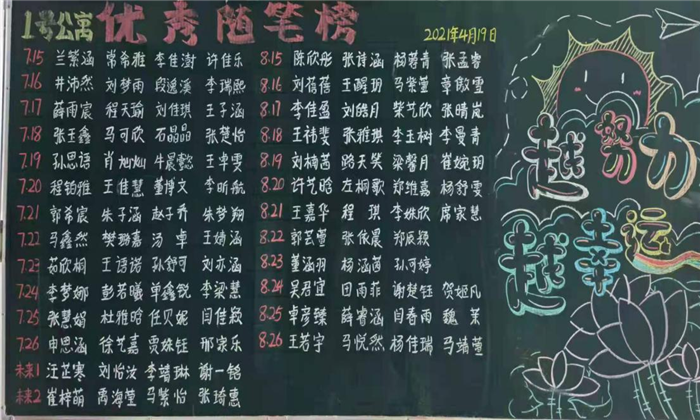 1号公寓 优秀随笔榜
2021年4月19日
7.15 兰紫涵 常希雅 李佳澍 许佳乐
7.16 井沛然 刘梦雨 段逸溪 李瑞熙
7.17 薛雨宸 程天瑜 刘佳琪 王子涵
7.18 张玉鑫 马可欣 石晶晶 张楚怡
7.19 孙思语 牛晨懿
7.20 王佳慧 董博文 李昕航
7.21 郭希宸 朱子涵 赵子乔 朱梦翔
7.22 马鑫然 樊璐嘉 汤卓 王婧涵
7.23 茹欣桐 孙舒可 刘亦涵
7.24 李梦娜 彭若曦 单鑫锐 李梁慧
7.25 张慧娟 杜雅晗 任贝妮 闫佳颖
7.26 申思涵 徐艺嘉 贾姝钰 邢家乐
未来1 汪芷寒 刘怡汝 李靖琳 谢一铭
未来2 崔梓萌 马紫怡 张琦惠
8.15 陈欣彤 张诗涵 杨蓉青 张孟睿
8.16 刘蓓蓓 王醒玥 马紫萱 章傲雪
8.17 李佳盈 刘皓月 柴艺欣 张晴岚
8.18 王祎斐 张雅琪 李玉树 李曼青
8.19 刘楠茜 路天奖 梁馨月 崔婉玥
8.20 许艺晗 左桐歌 郑维嘉 杨舒雯
8.21 王嘉华 程琪 李姝欣 席家慧
8.22 郭芸萱 张依晨 郑辰颖
8.23 董涵羽 杨涵茵 孙可婷
8.24 吴君宜 田雨菲 谢楚钰 贺姬凡
8.25 薛睿涵 闫春雨 魏茉
8.26 王若宇 马悦然 杨佳瑞 马靖萱
越努力
越幸运